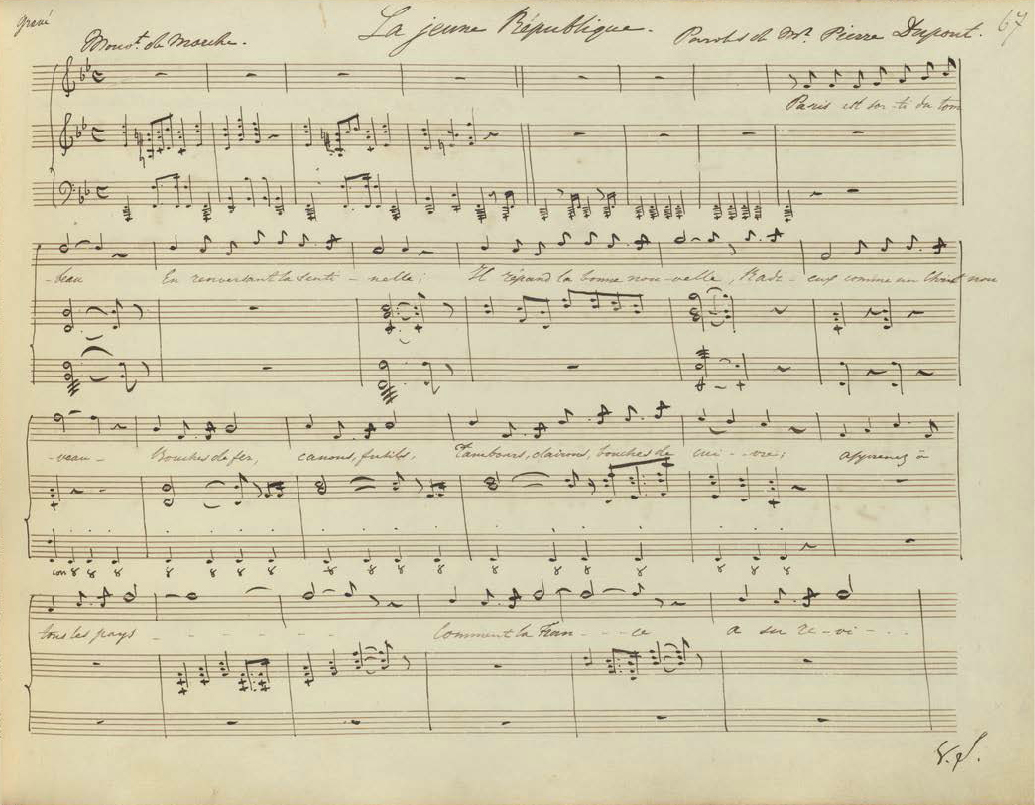 gravé
La jeune République.
67
Mouvt. de Marche.
Paroles de Mr. Pierre Dupont.
Paris est sor-ti du tom
-beau En renversant la senti-nelle: Il répand la bonne nou-velle, Radi-eux comme un Christ nou
-veau- Bouches de fer, canons, fusils, Tambours, clairons, bouches de cui--vre; apprenez à
8 8 8 8 8 8 8 8 8 8 8 8 8 8 8 8 8
tous les pays - - - - - - Comment la Fran---ce a su re-vi-...
V.S.